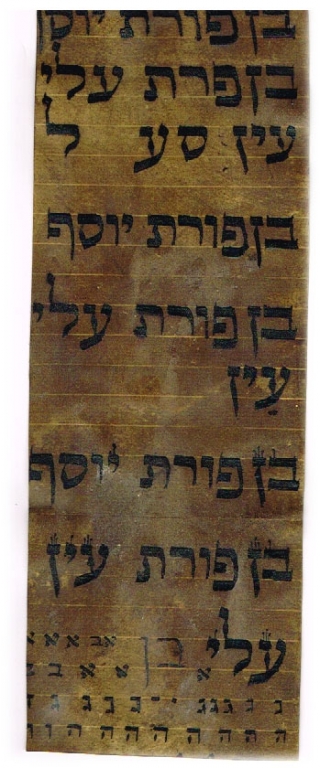 בן פורת יוסף
בן פרת עלי
עין סע ל
בן פורת יוסף
בן פורת עלי
עין
בן פורת יוסף
בן פורת עין
עלי בן אב א א א